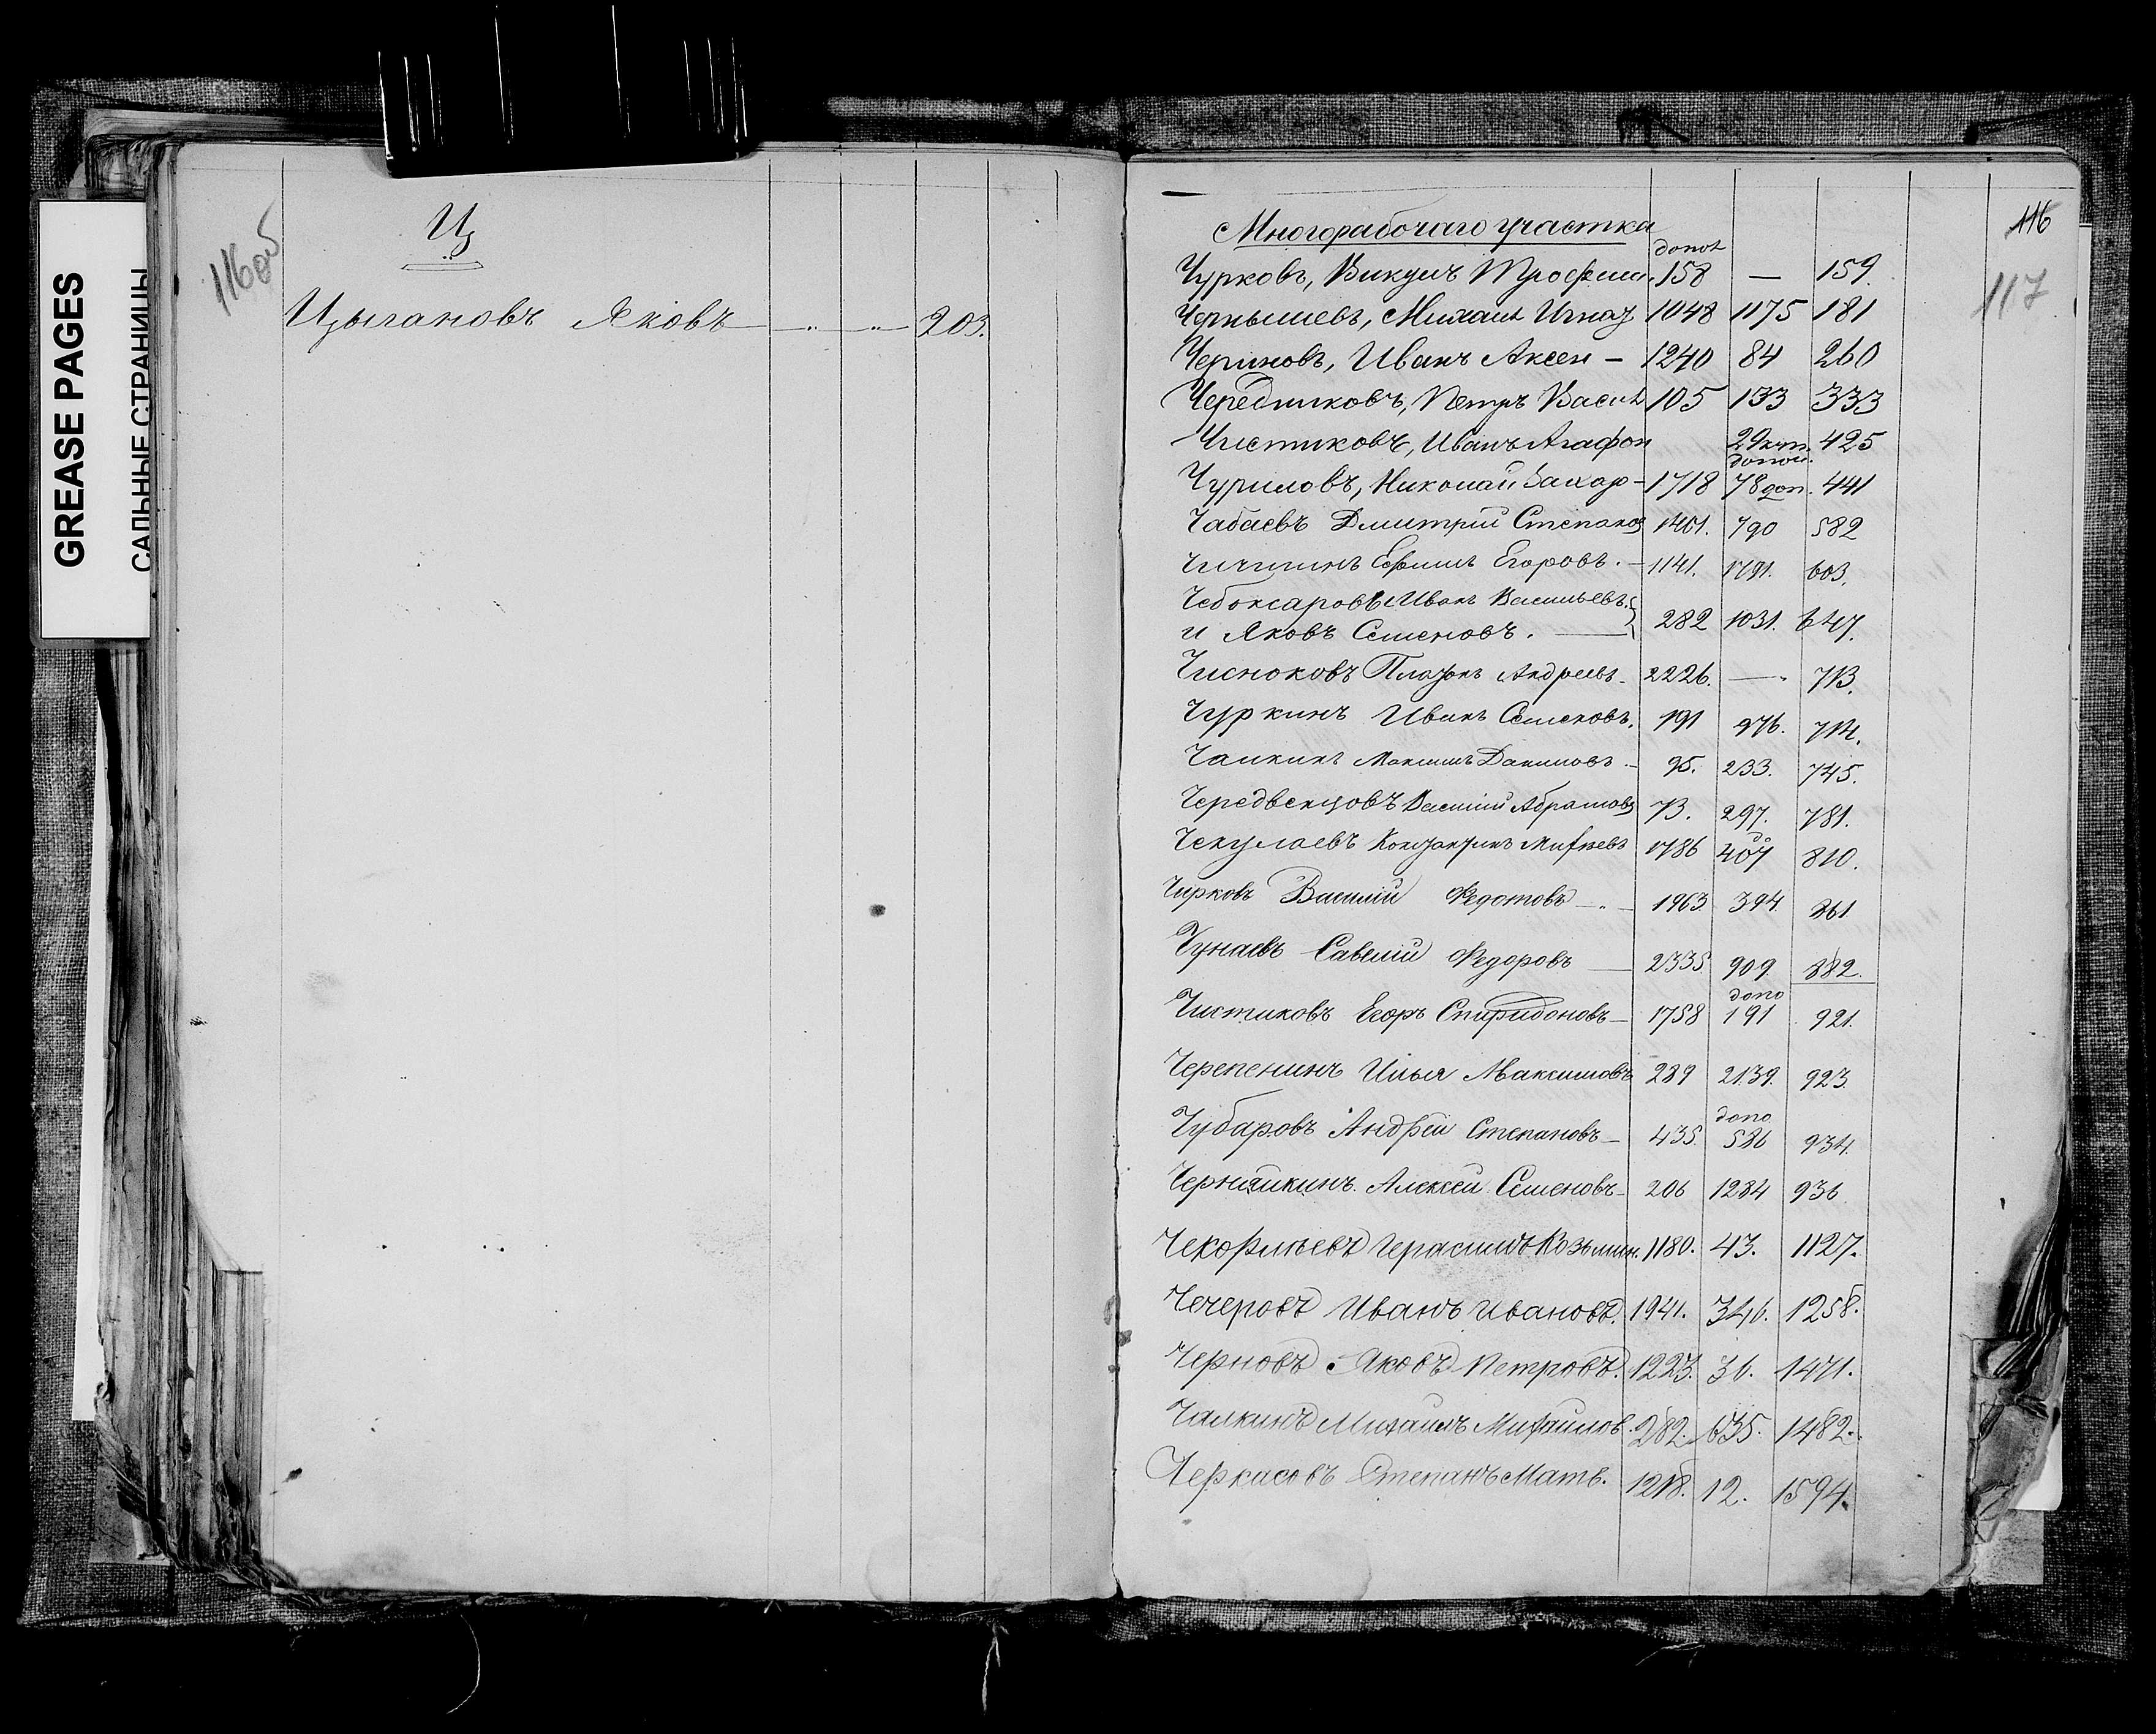 GREASE PAGES
САЛЬНЫЕ СТРАНИЦЫ
116об
Ц
Цыгановъ Яковъ — „ — „ — 203.
Многорабочаго участка
116
117
допол
Чурковъ, Викулъ Трофим. 158 — 159.
Чернышевъ, Михаил Игнат 1048 1175 181
Черновъ, Иванъ Аксен – 1240 84 260
Чередниковъ, Петръ Васил 105 133 333
Чистиковъ, Иванъ Агафон 29 425
допол.
Чуриловъ, Николай Захар – 1718 78 доп. 441
Чабаевъ Дмитрій Степанов 1401. 790 582
Чичинъ Ефимъ Егоровъ. – 1141. 1791. 603.
Чебоксаровъ Иванъ Васильевъ.
и Яковъ Семеновъ. — 282 1031. 647.
Чисноковъ Платонъ Андреевъ. 2226. — 713.
Чуркинъ Иванъ Семеновъ. 191 976. 714.
Чалкинъ Максимъ Даниловъ – 95. 233. 745.
Чередвенцовъ Василій Абрамовъ 73. 297. 781.
до
Чекулаевъ Константинъ 1786 407 810.
Чирковъ Василій Федотовъ – „ – 1963. 394. 861.
Чунаевъ Савелій Федоровъ — 2335 909. 882.
допо
Чистиковъ Егоръ Спиридоновъ – 1758 191 921.
Черепенинъ Илья Максимовъ 289 2139. 923.
допо
Чубаровъ Андрей Степановъ – 435. 586 934.
Черняйкинъ Алексей Семеновъ – 206 1284 936.
Герасимъ Козьмин. 1180. 43. 1127.
Чечеровъ Иванъ Ивановъ. 1941. 346. 1258.
Черновъ Яковъ Петровъ. 1223. 36. 1471.
Чалкинъ Михаилъ Михайлов. 282. 635. 1482.
Черкасовъ Степанъ Матв. 1218. 12. 1594.